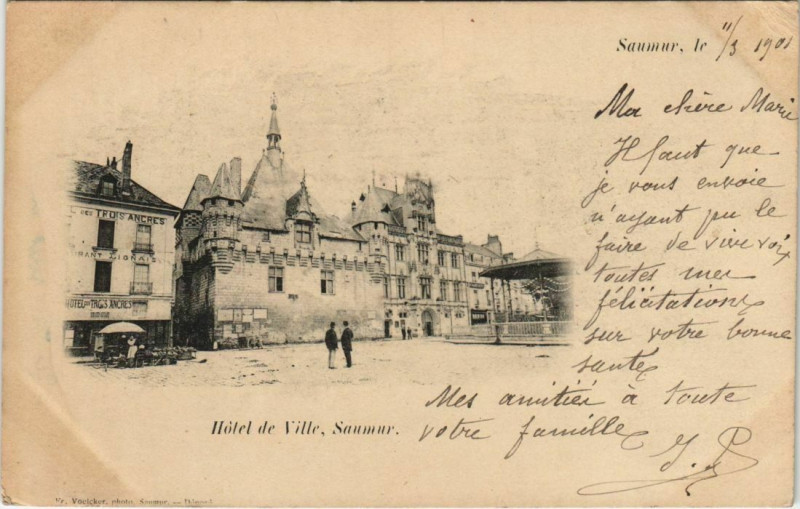 Saumur, le 11/3 1901
Ma chère Marie
Il faut que
je vous envoie
n'ayant pu le
faire de vive voix
toutes mes
félicitations
sur votre bonne
santé
Mes amitiés à toute
votre famille
DES TROIS ANCRES
HÔTEL DES TROIS ANCRES
Hôtel de Ville, Saumur.
Fr. Voelcker, photo, Saumur. — Déposé